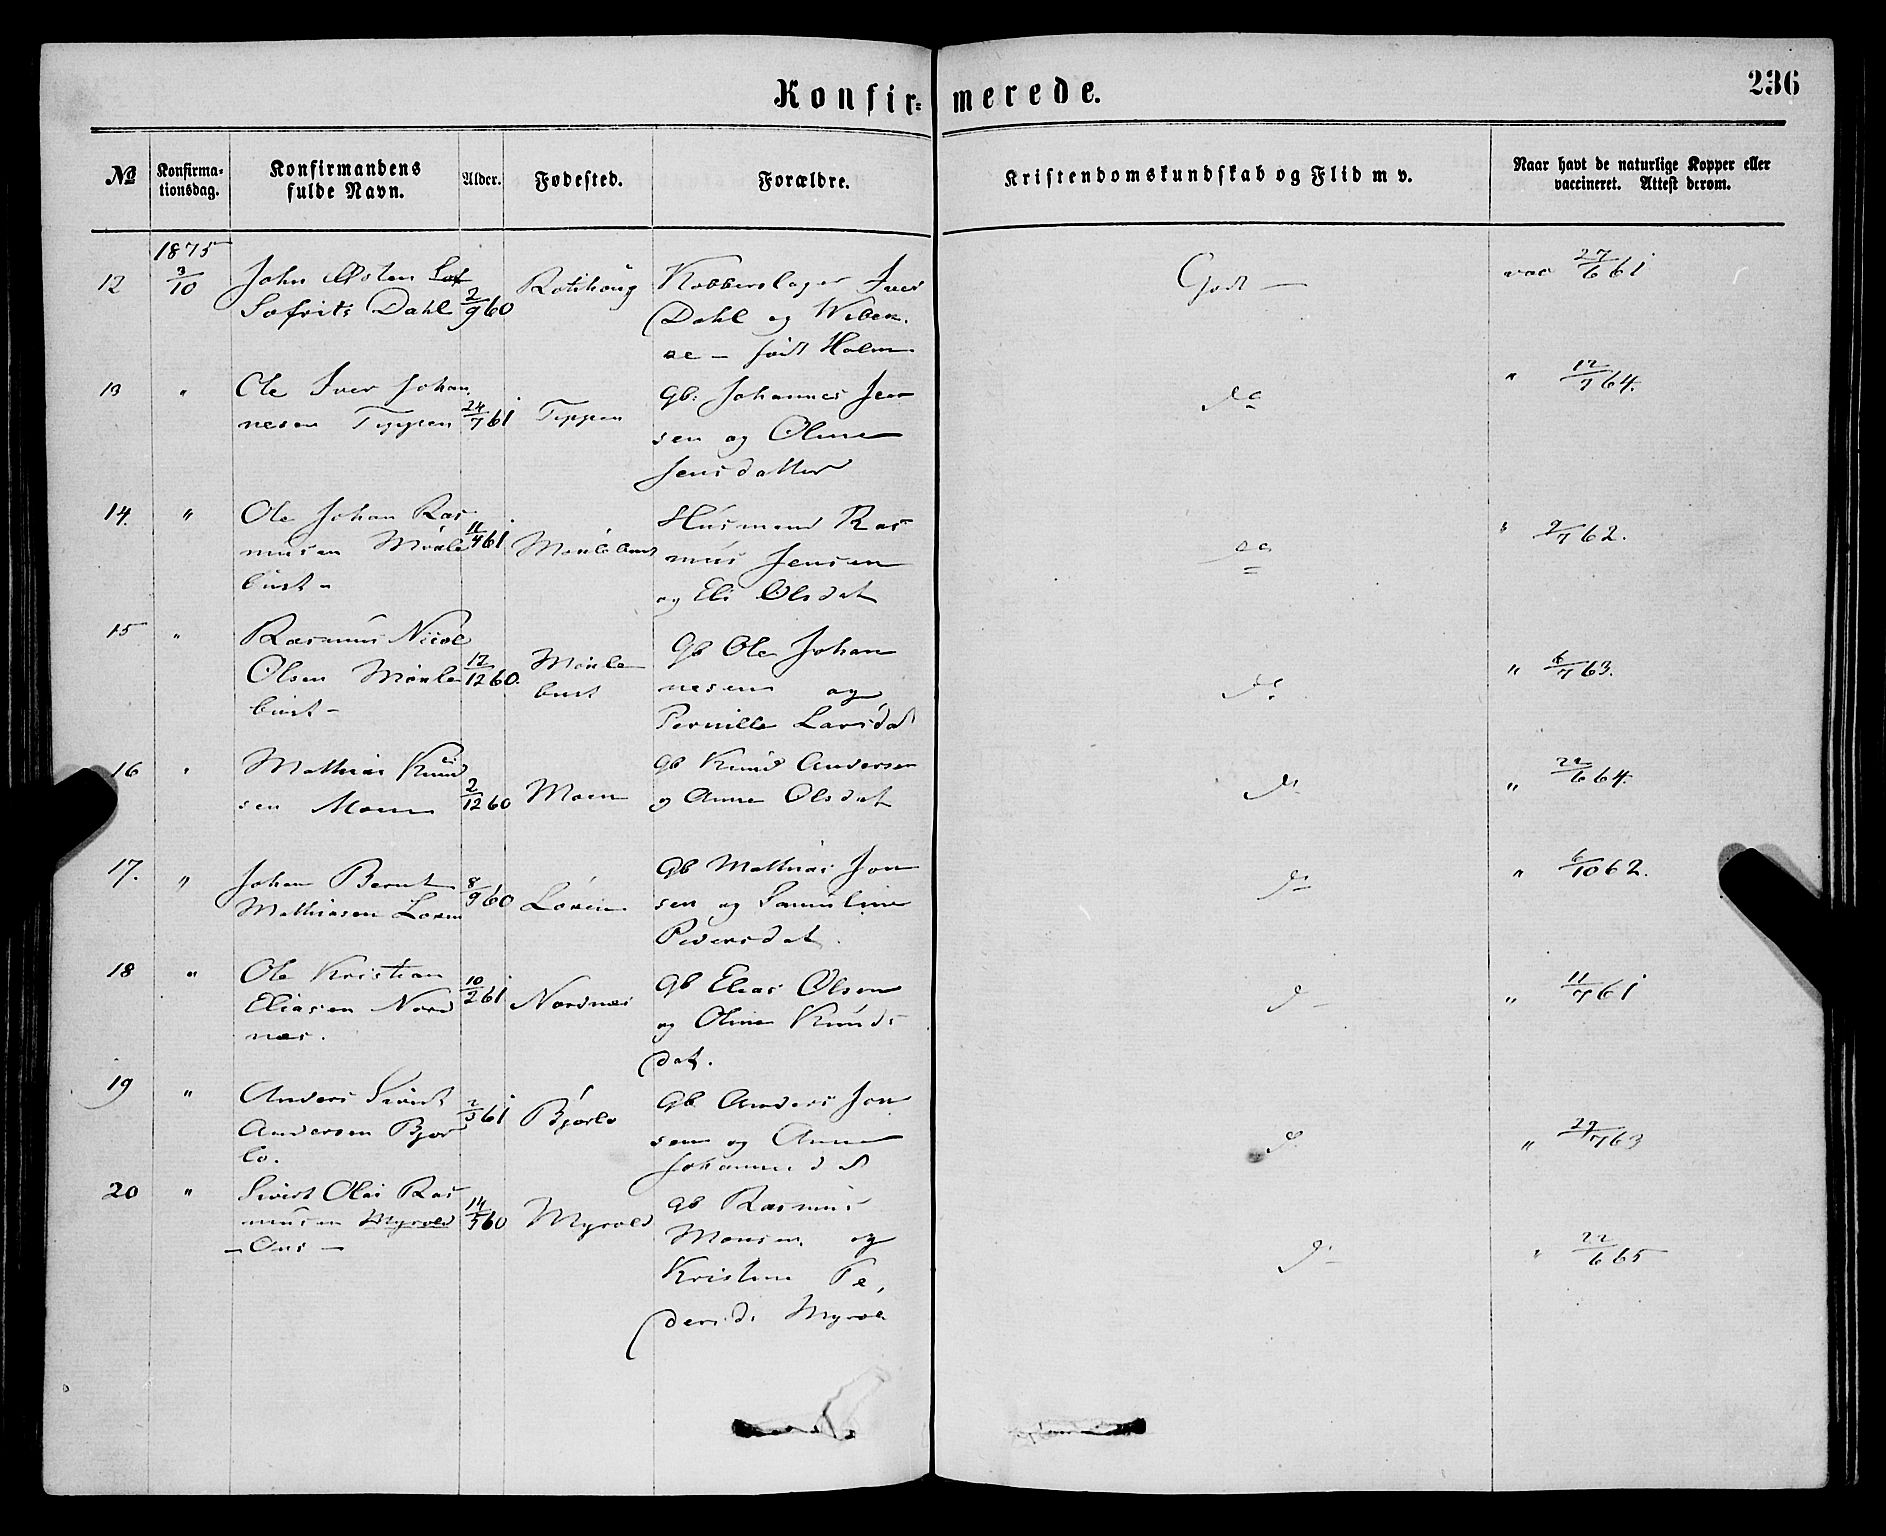 Konfirmerede.
236
№
Konfirma-
tionsdag.
Konfirmandens
fulde Navn.
Alder.
Fødested.
Forældre.
Kristendomskundskab og Flid m v.
Naar havt de naturlige Kopper eller
vaccineret. Attest derom.
1875
12 3/10 John Østen
Sofrits Dahl 2/9 60
Kobberslager Iver
Dahl og Wibek-
ke - født Holm
Godt -
vac 27/6 61
13 " Ole Iver Johan
nesen Teppen 24/7 61 Teppen
Gb: Johannes Jen
sen og Oline
Jensdatter
do
" 12/7 64.
14. " Ole Johan Ras
musen Moule
bust - 11/4 61 Moulebust
Husmand Ras
mus Jensen
og Eli Olsdat
do
" 9/7 62.
15 " Rasmus Nicol
Olsen Moule
bust - 17/12 60. Moule
bust
Gb Ole Johan
nesen og
Pernille Larsdat
do
" 6/7 63.
16 " Mathias Knud
sen Moen 2/12 60 Moen
Gb Knud Andersen
og Anne Olsdat
do
" 22/6 64.
17. " Johan Bernt
Mathiasen Loven 8/9 60
Gb Mathias Jon
sen og
Pedersdat.
do
" 6/10 62.
18 " Ole Kristian
Eliasen Nord
nes. 10/2 61 Nordnes
Gb Elias Olsen
og Oline Knuds
dat.
d -
" 11/7 61
19 " Anders Sivert
Andersen Bjør
lo. 2/3 61 Bjørlo
Gb Anders Jon
sen og Anne
Johannesd
d
" 29/7 63
20 " Sivert Olai Ras
musen Myrvold
- Ous - 14/5 60 Myrvold
Gb Rasmus
Monsen og
Kristine Pe,
dersd. Myrvol
d -
" 22/6 65